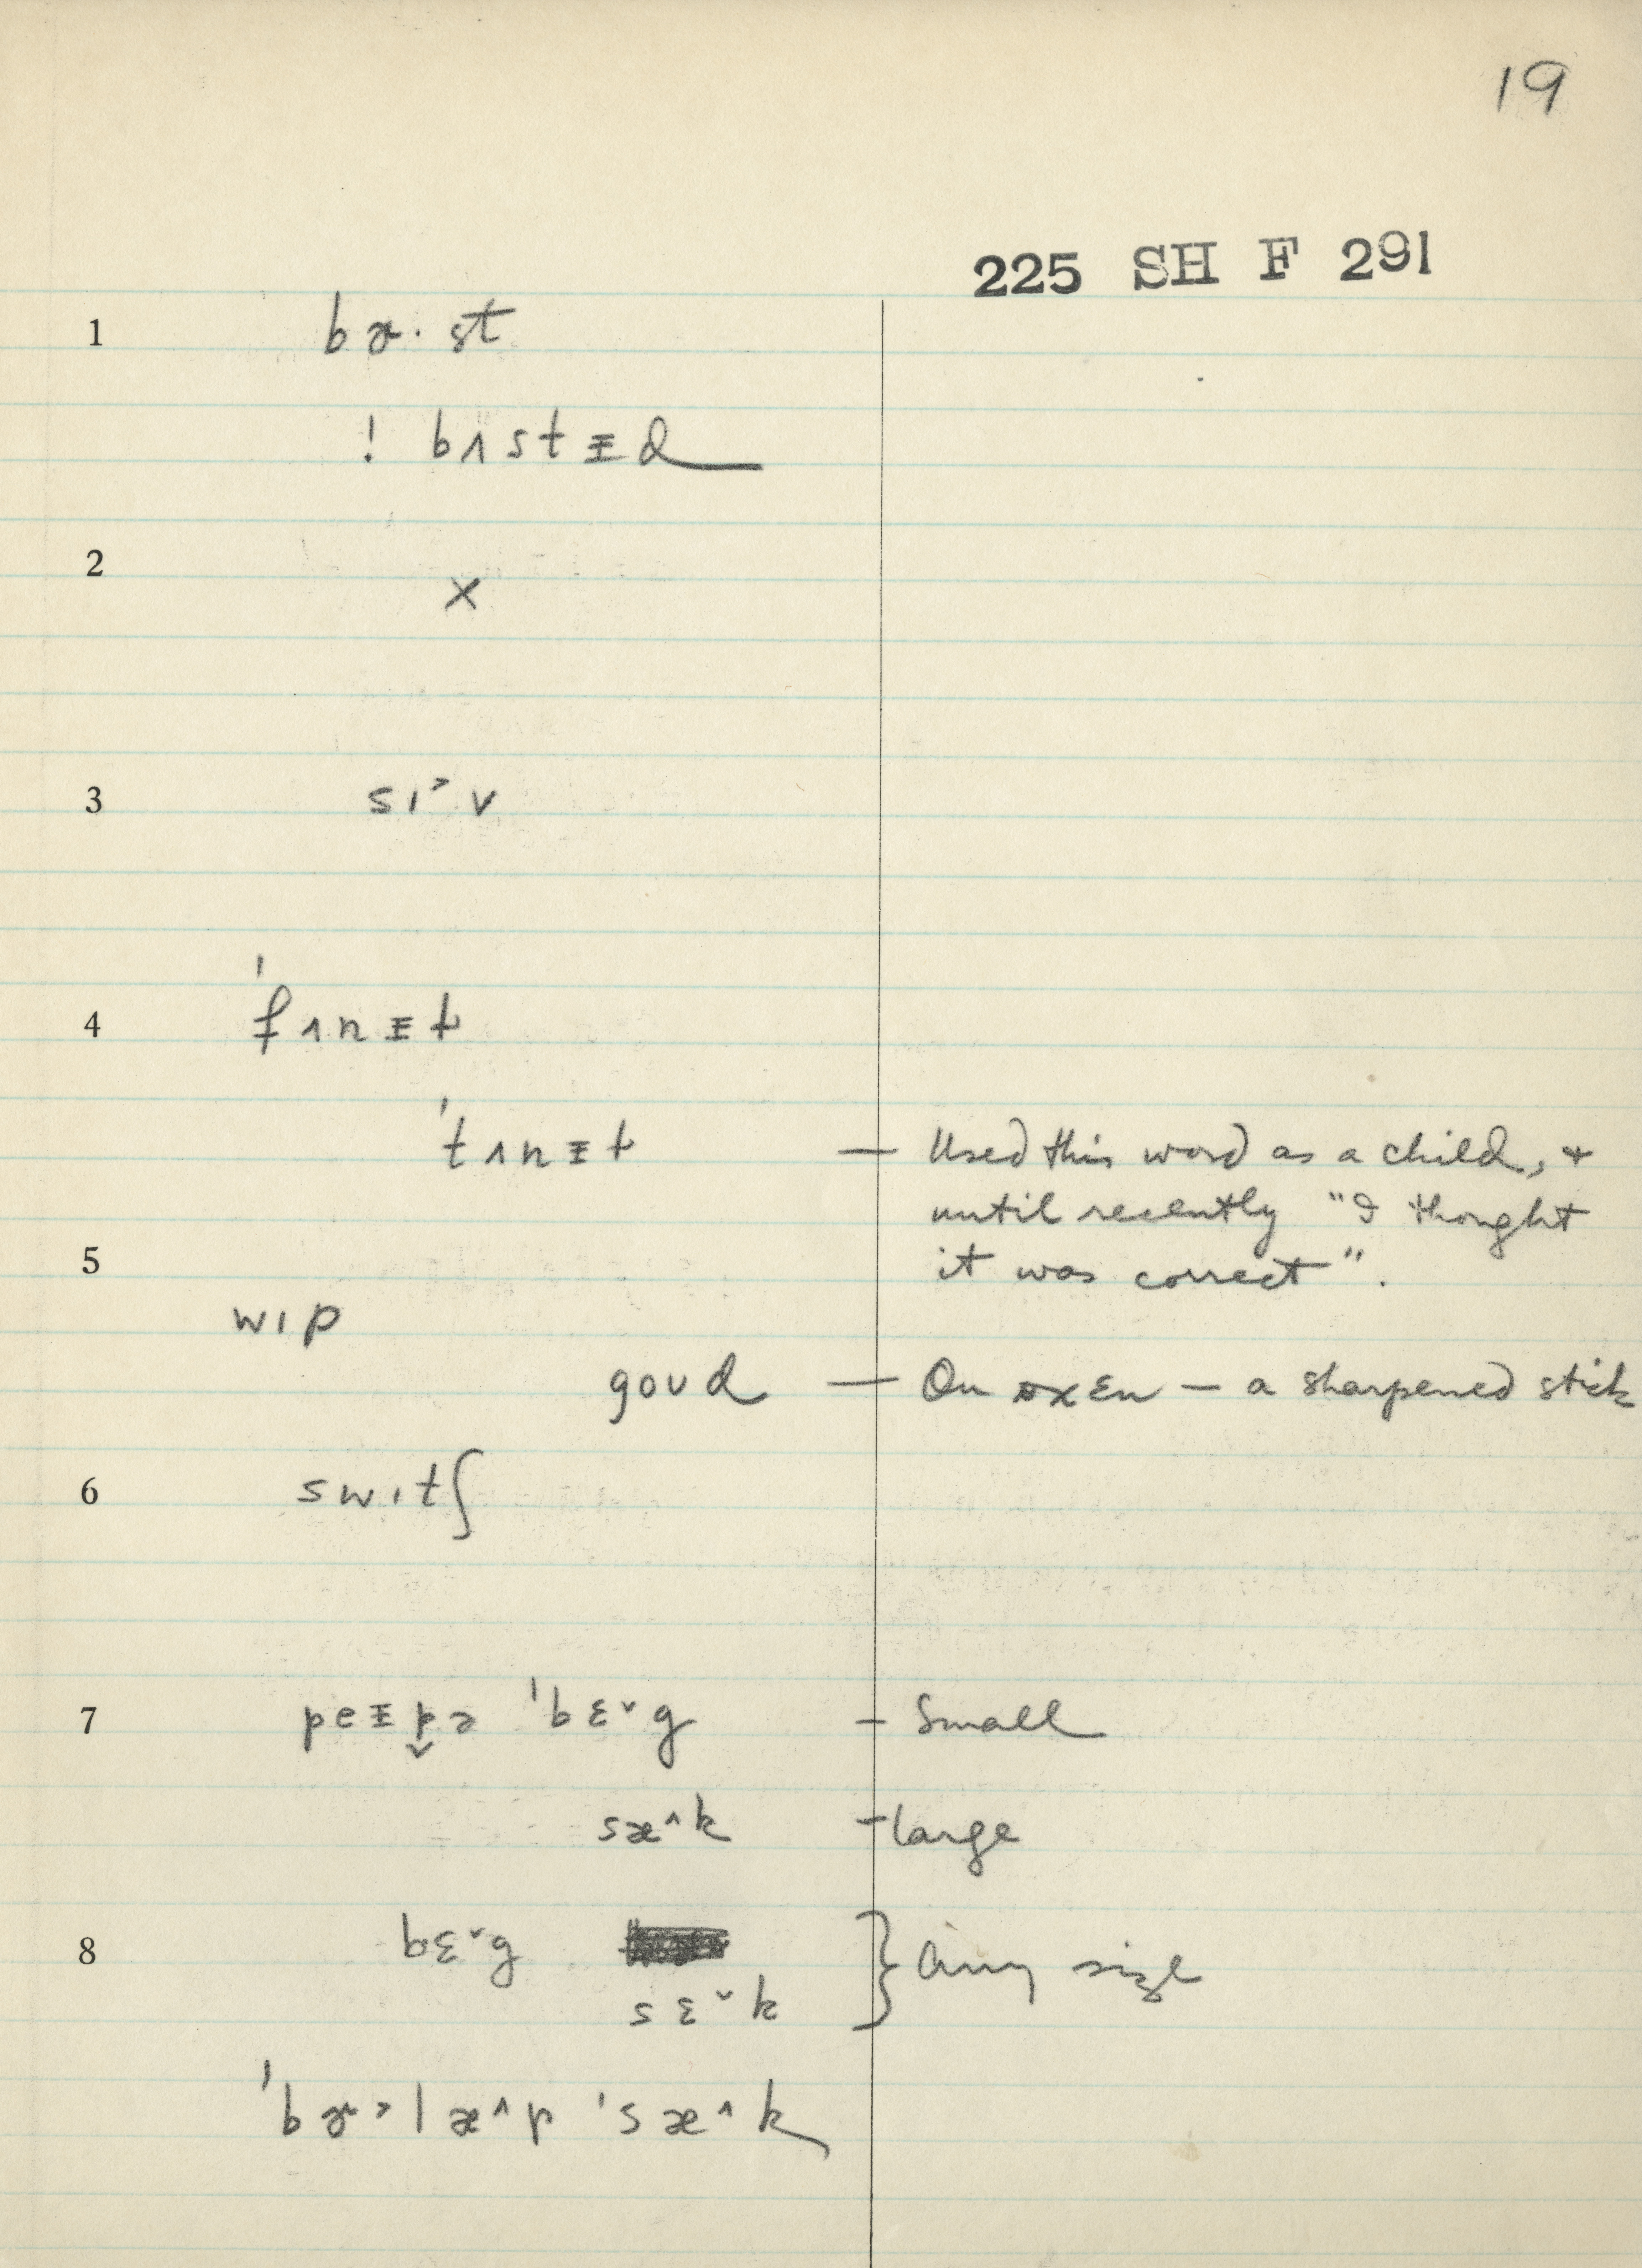 19
225 SH F 291
1 bɚ·st
! bʌstᵻd
2 ×
3 sɪ˃v
4 ˈfʌnᵻɫ
ˈtʌnᵻɫ — Used this word as a child, +
until recently "I thought
5 it was correct".
wɪp
goʊd — On oxen — a sharpened stick
6 switʃ
7 peᵻp̬ɚ ˈbɛ˅g – Small
sæ˄k – large
8 bɛ˅g } Any size
sɛ˅k
ˈbɚ˃læ˄p ˈsæ˄k